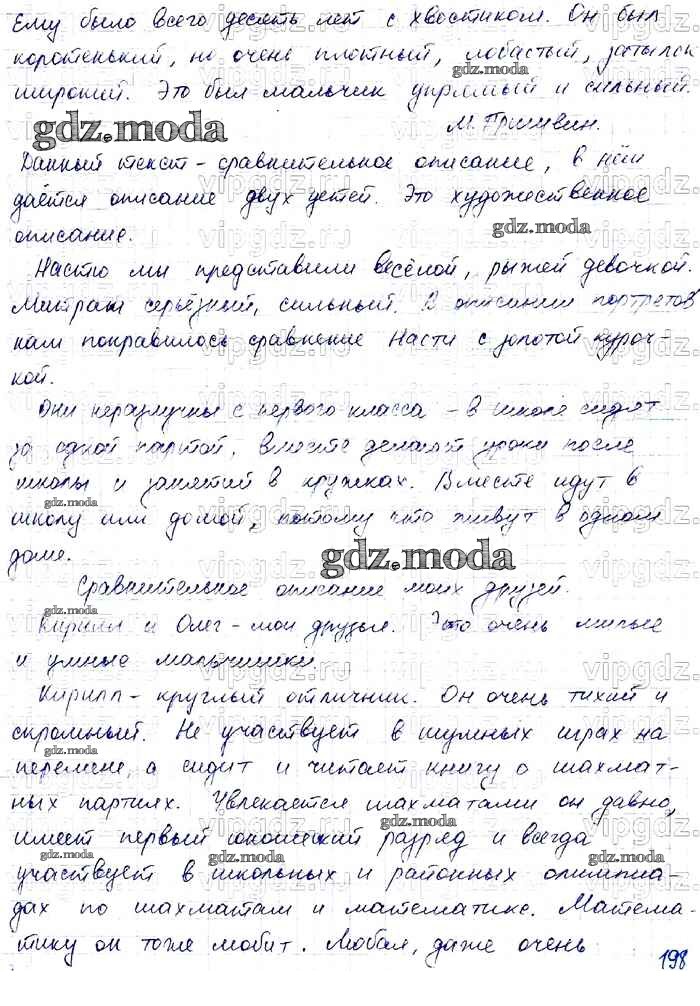 Ему было всего десять лет с хвостиком. Он был
коротенький, но очень плотный, лобастый, затылок
широкий. Это был мальчик упрямый и сильный.
М. Пришвин.
Данный текст - сравнительное описание, в нём
даётся описание двух детей. Это художественное
описание.
Настю мы представили весёлой, рыжей девочкой.
Митраш серьёзный, сильный. В описании портретов
нам понравилось сравнение Насти с золотой куроч-
кой.
Они неразлучны с первого класса - в школе сидят
за одной партой, вместе делают уроки после
школы и занятий в кружках. Вместе идут в
школу или домой, потому что живут в одном
доме.
Сравнительное описание моих друзей.
Кирилл и Олег - мои друзья. Это очень милые
и умные мальчишки.
Кирилл - круглый отличник. Он очень тихий и
скромный. Не участвует в шумных играх на
перемене, а сидит и читает книгу о шахмат-
ных партиях. Увлекается шахматами он давно,
имеет первый юношеский разряд и всегда
участвует в школьных и районных олимпиа-
дах по шахматам и математике. Матема-
тику он тоже любит. Любая, даже очень
198
gdz.moda
vipgdz.ru